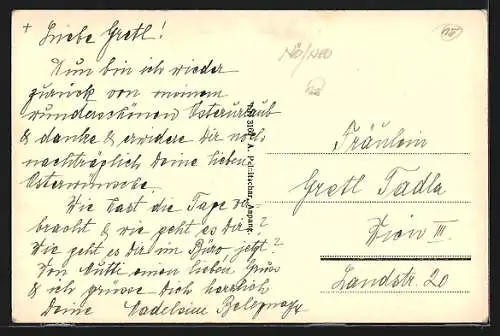 Liebe Gretl!
Nun bin ich wieder
zurück von meinem
wunderschönen Osterurlaub
& danke & erwidere Dir noch
nachträglich Deine lieben
Osterwünsche.
Wie hast die Tage ver
bracht & wie geht es Dir?
Wie geht es Dir im Büro jetzt?
Von Mutti einen lieben Gruss
& ich grüsse Dich herzlich
Deine
NÖ/NEU
Fräulein
Gretl Tadla
Wien III.
Landstr. 20